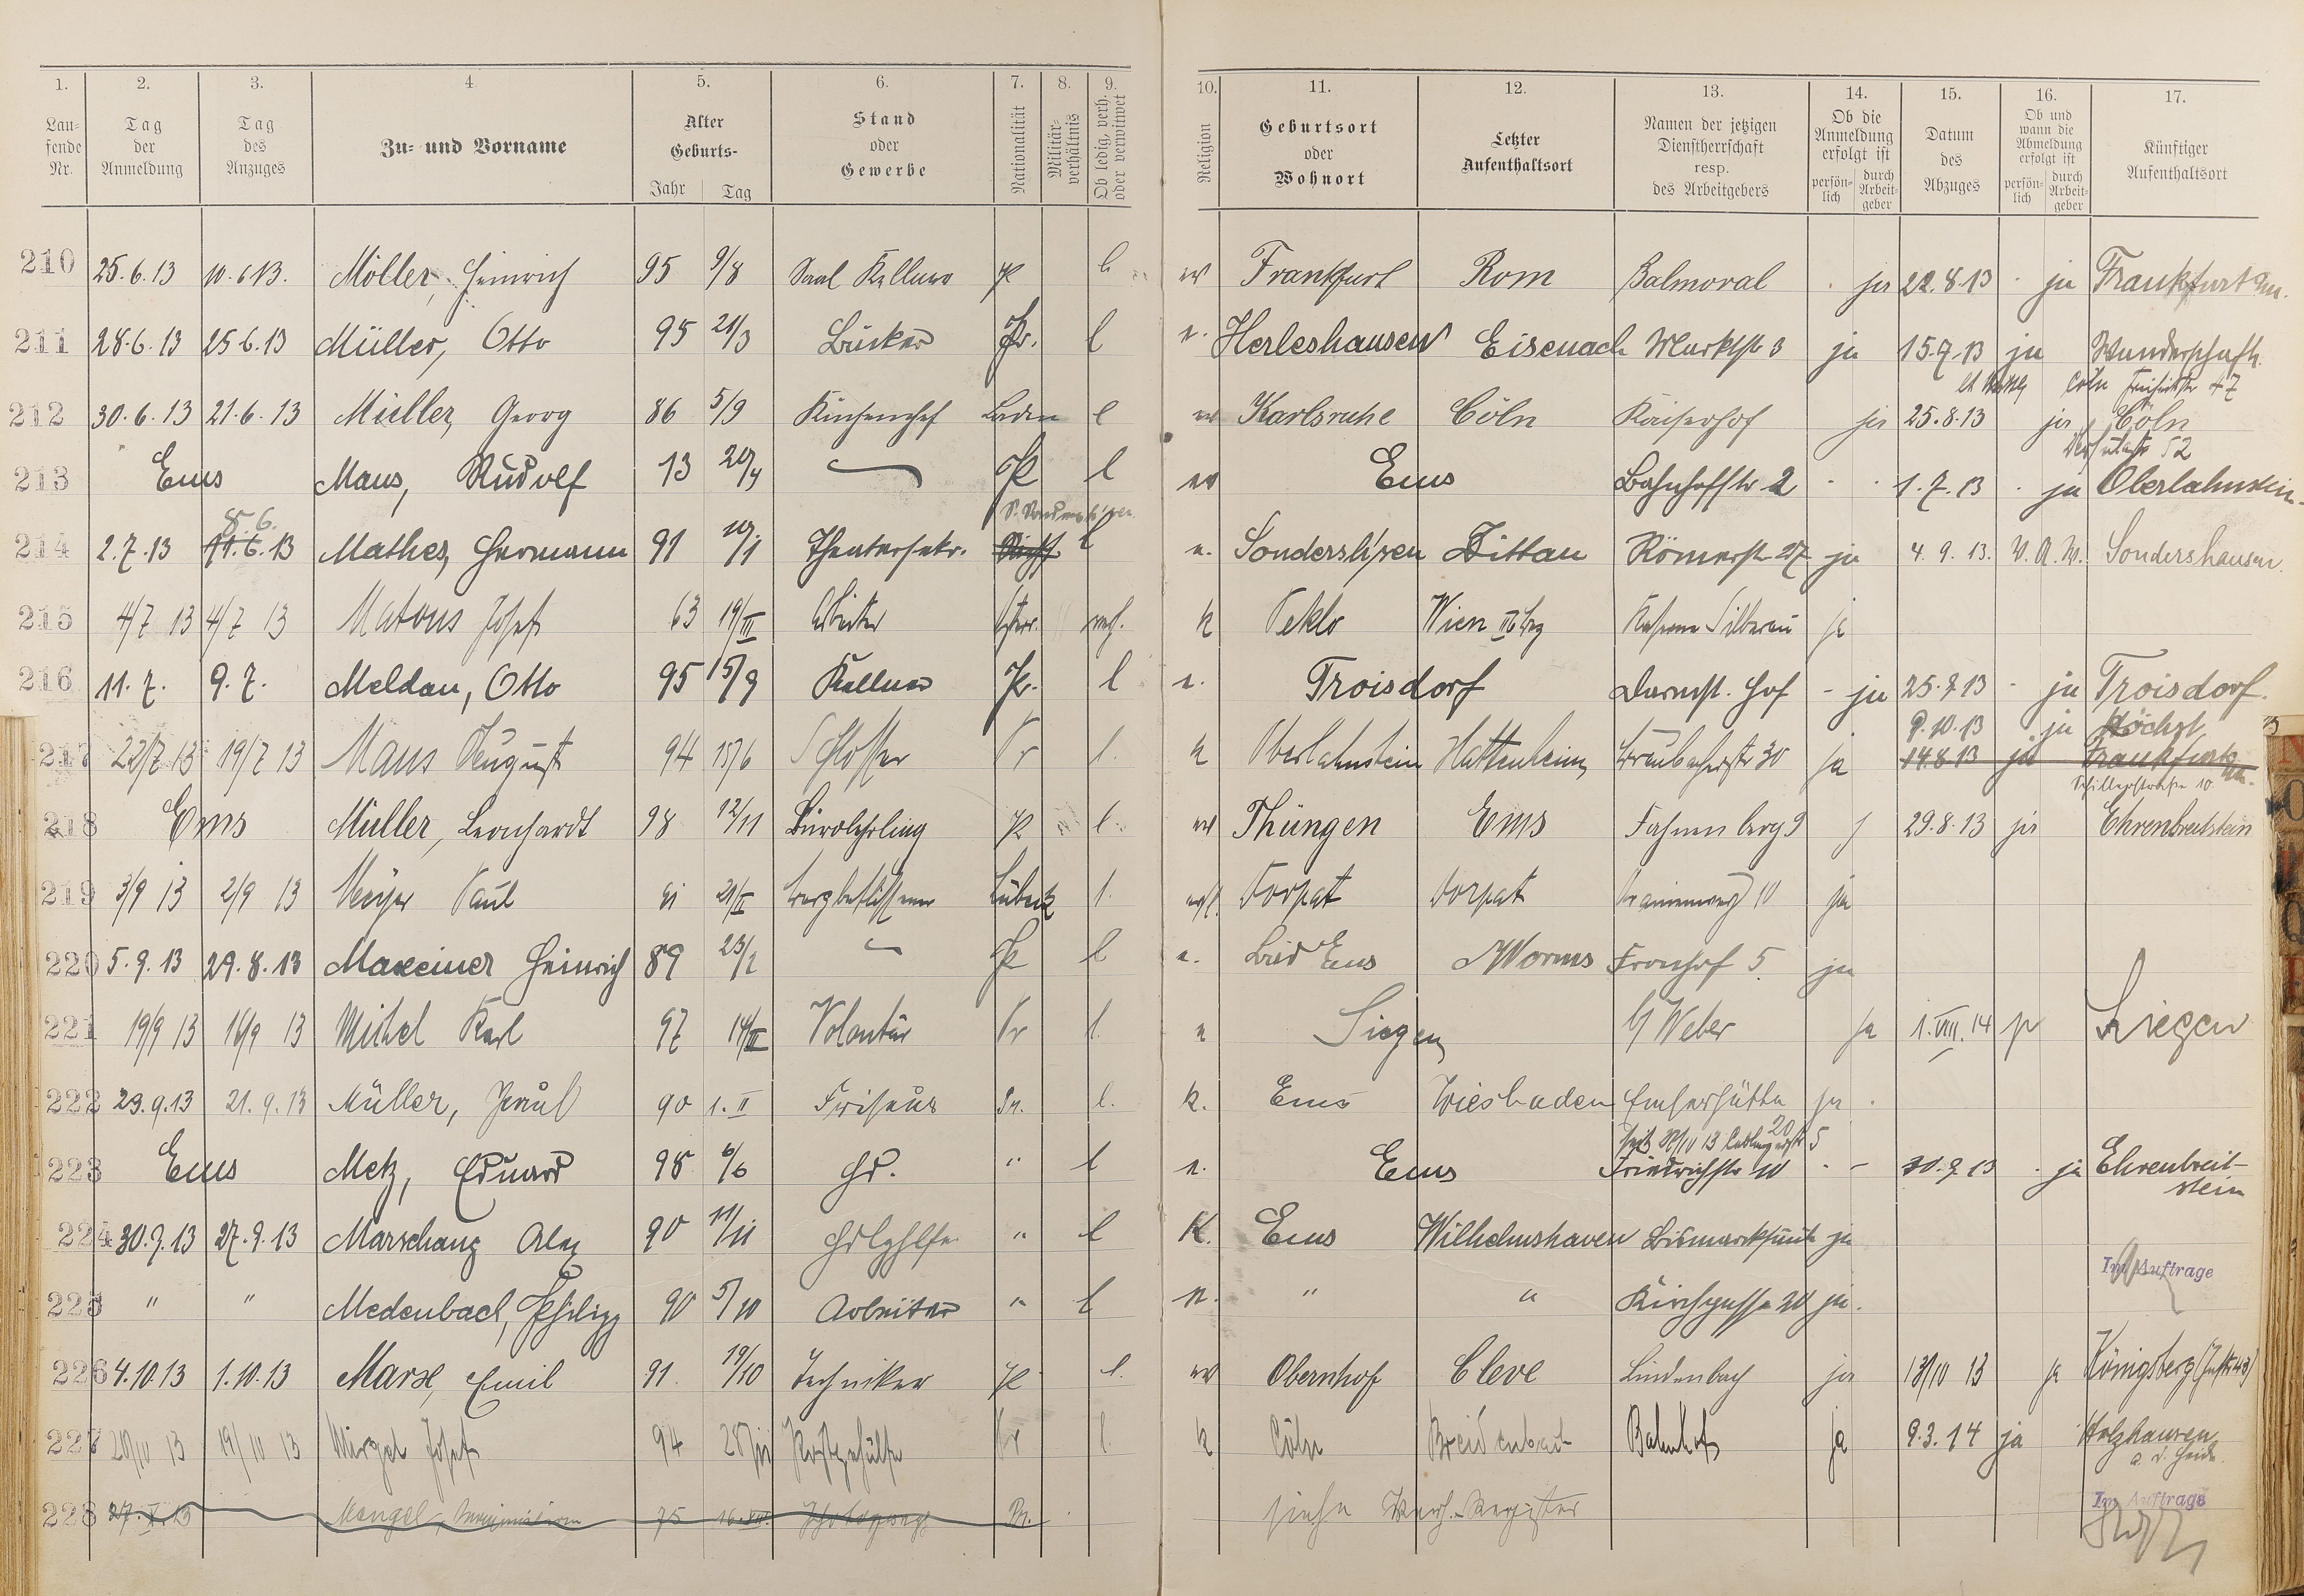 1. 2. 3. 4. 5. 6. 7. 8. 9. 10. 11. 12. 13. 14. 15. 16. 17.
Lau-fende Nr. Tag der Anmeldung Tag des Anzuges Zu- und Vorname Alter Geburts- Jahr Tag Stand oder Gewerbe Nationalität Militär-verhältnis Ob ledig, verh. oder verwitwet Religion Geburtsort oder Wohnort Letzter Aufenthaltsort Namen der jetzigen Dienstherrschaft resp. des Arbeitgebers Ob die Anmeldung erfolgt ist persön-lich durch Arbeit-geber Datum des Abzuges Ob und wann die Abmeldung erfolgt ist persön-lich durch Arbeit-geber Künftiger Aufenthaltsort
210 25.6.13 10.6.13. Möller, Heinrich 95 9/8 Saal Kellner l Frankfurt Rom Balmoral ja 22.8.13 ja Frankfurt a/m.
211 28.6.13 25.6.13 Müller, Otto 95 21/3 Bäcker Pr. l Herleshausen Eisenach Marktstr 3 ja 15.9.13 ja Wanderschaft.
212 30.6.13 21.6.13 Müller, Georg 86 5/9 Küchenchef Baden l Karlsruhe Cöln Kaiserhof ja 25.8.13 ja Cöln
213 Ems Maus, Rudolf 13 20/4 l Ems Bahnhofstr 2 1.7.13 ja Oberlahnstein
8.6.
214 2.7.13 11.6.13 Mathes, Hermann 91 10/1 Theatersekr. l Sondersh'sen Zittau Römerstr 27 ja 4.9.13. Sondershausen.
215 4/7 13 4/7 13 Matous Josef 63 19/III Arbeiter verh. k Wien Silberau ja
216 11.7. 9.7. Meldau, Otto 95 15/9 Kellner Pr. l Troisdorf Darmst. Hof - ja 25.9.13 ja Troisdorf.
9.10.13 ja Höchst
217 22/7 13 19/7 13 Maus August 94 15/6 Schlosser Pr l. k Oberlahnstein Hattenheim 30 ja 14.8.13 ja Frankfurt a/m.
Schillerstraße 10
218 Ems Müller, Leonhardt 98 12/11 Bürolehrling l. Thüngen Ems Fahnenberg 9 j 29.8.13 ja Ehrenbreitstein
219 3/9 13 2/9 13 Meyer Paul Bergbeflissener Lübeck l. Dorpat Dorpat 10 ja
220 5.9.13 29.8.13 Maxeiner Heinrich 89 23/2 l Bad Ems Worms Fronhof 5. ja
221 19/9 13 16/9 13 Michel Karl 97 14/III Volontär Pr l. Siegen G Weber ja 1.VIII.14 ja Siegen
222 29.9.13 21.9.13 Müller, Paul 90 1.II Friseur Pr. l. k. Ems Wiesbaden Emserhütte ja
20
223 Ems Metz, Eduard 98 6/6 " l Ems Friedrichstr 10 - 30.9.13 ja Ehrenbreit-
stein
224 30.9.13 27.9.13 Marschang Alex 90 11/11 " l K. Ems Wilhelmshaven ja
Im Auftrage
225 " " Medenbach, Philipp 90 5/10 Arbeiter " l " " Kirchgasse 20 ja.
226 4.10.13 1.10.13 Marx, Emil 91 19/10 Techniker l. Obernhof Cleve Lindenbach ja 13/10 13 ja Königsberg
227 20/10 13 19/10 13 Josef 94 Postgehülfe Pr l. k Cöln Bahnhof ja 9.3.14 ja Holzhausen
a. d. Heide.
228 Mengel, 75 Photograph Pr. siehe Verh.-Register
Im Auftrage